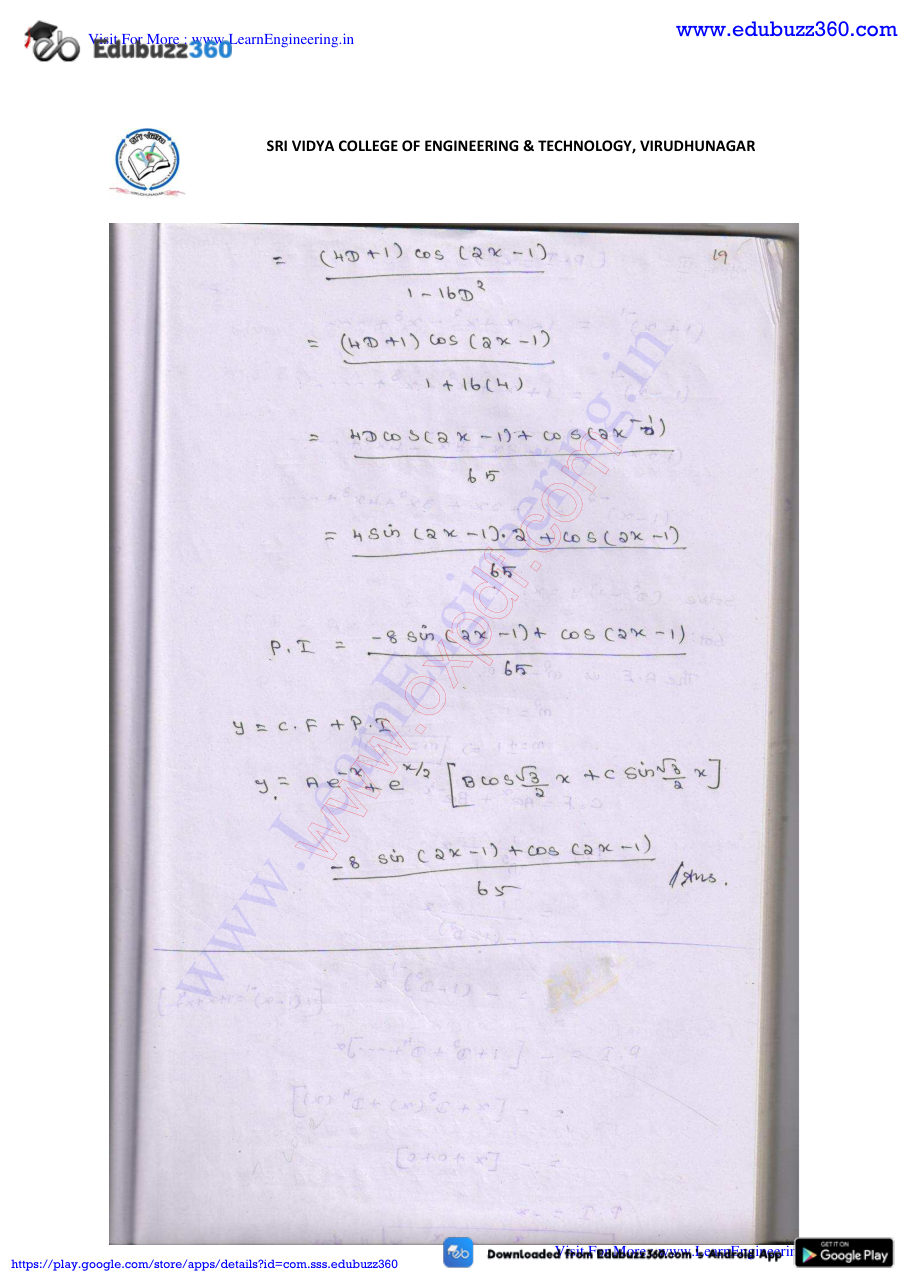 Visit For More : www.LearnEngineering.in
www.edubuzz360.com
Edubuzz360
SRI VIDYA COLLEGE OF ENGINEERING & TECHNOLOGY, VIRUDHUNAGAR
19
= (4D+1) cos (2x-1)
1-16D²
= (4D+1) cos (2x-1)
1+16(4)
= 4D cos(2x-1)+ cos(2x-1)
65
= 4 sin (2x-1).2 + cos(2x-1)
65
P.I = -8 sin (2x-1)+ cos (2x-1)
65
y = C.F + P.I
y = Ae^-x + e^x/2 [B cos √3/2 x + C sin √3/2 x]
-8 sin (2x-1) + cos (2x-1)
65
Ans.
www.LearnEngineering.in
www.oxpdf.com
Downloaded from Edubuzz360.com 's Android App
Visit For More : www.LearnEngineerin
GET IT ON
Google Play
https://play.google.com/store/apps/details?id=com.sss.edubuzz360